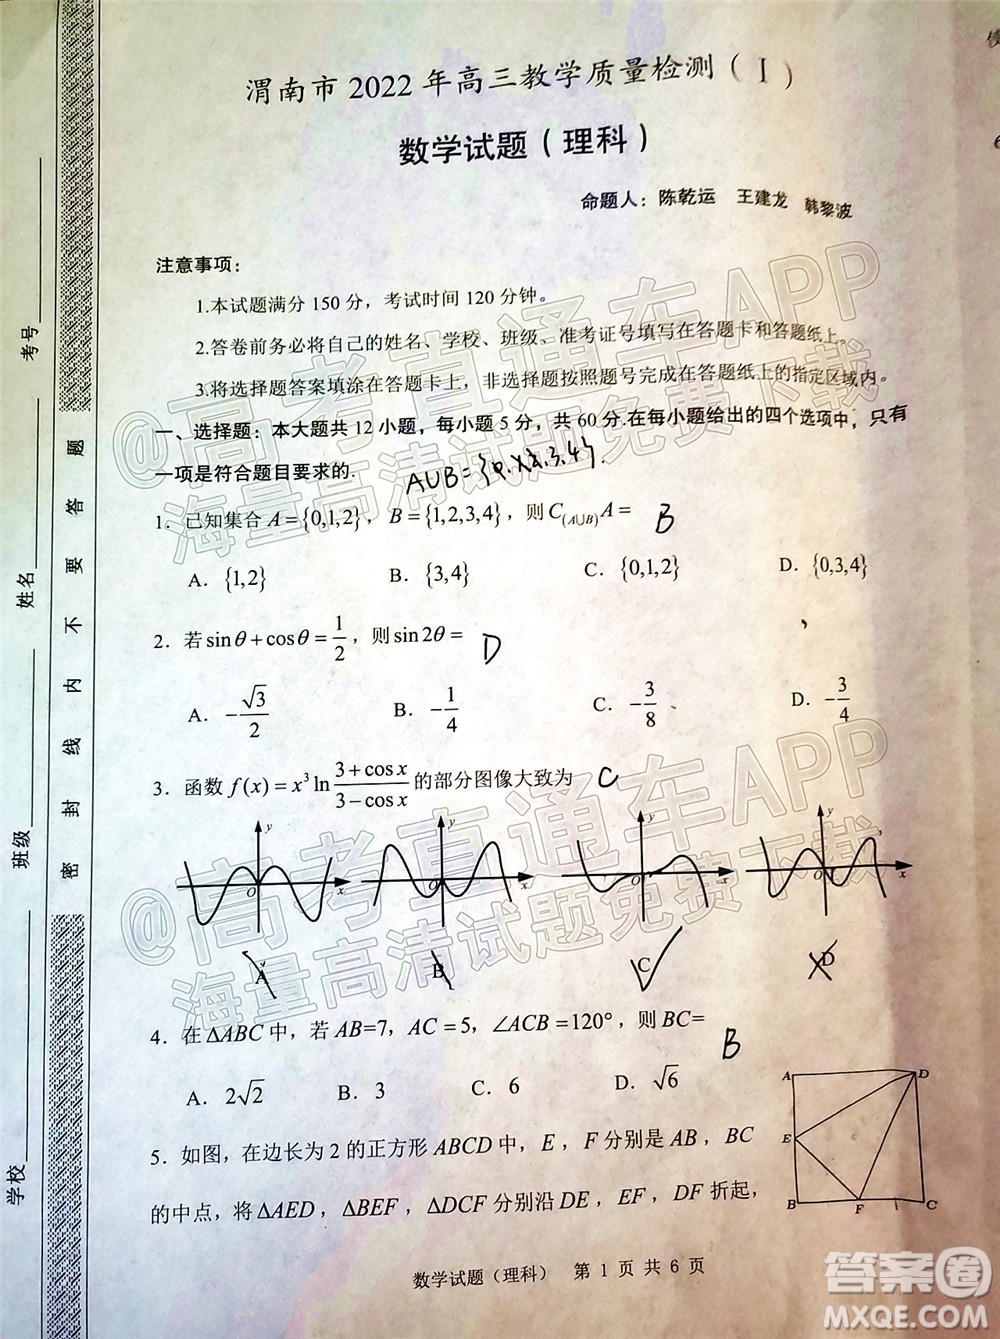 渭南市 2022 年高三教学质量检测（Ⅰ）
数学试题（理科）
命题人：陈乾运 王建龙 韩黎波
注意事项：
1.本试题满分 150 分，考试时间 120 分钟。
2.答卷前务必将自己的姓名、学校、班级、准考证号填写在答题卡和答题纸上。
3.将选择题答案填涂在答题卡上，非选择题按照题号完成在答题纸上的指定区域内。
一、选择题：本大题共 12 小题，每小题 5 分，共 60 分.在每小题给出的四个选项中，只有
一项是符合题目要求的.
A∪B={0,1,2,3,4}.
1．已知集合 A={0,1,2}，B={1,2,3,4}，则 C_(A∪B)A= B
A．{1,2} B．{3,4} C．{0,1,2} D．{0,3,4}
2．若 sinθ+cosθ=1/2，则 sin2θ= D
A．-√3/2 B．-1/4 C．-3/8 D．-3/4
3．函数 f(x)=x³ln (3+cosx)/(3-cosx) 的部分图像大致为 C
y y y y
O x O x O x O x
A B C D
4．在 ΔABC 中，若 AB=7，AC=5，∠ACB=120°，则 BC= B
A．2√2 B．3 C．6 D．√6
A D
E
B F C
5．如图，在边长为 2 的正方形 ABCD 中，E，F 分别是 AB，BC
的中点，将 ΔAED，ΔBEF，ΔDCF 分别沿 DE，EF，DF 折起，
数学试题（理科） 第 1 页 共 6 页
学校 班级 姓名 考号
密 封 线 内 不 要 答 题
@高考直通车APP
海量高清试题免费下载
@高考直通车APP
海量高清试题免费下载
答案圈
MXQE.COM